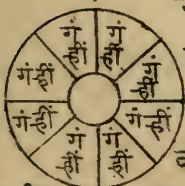 गं
ह्रीं
गं
ह्रीं
गं
ह्रीं
गं
ह्रीं
गं
ह्रीं
गं
ह्रीं
गं
ह्रीं
गं
ह्रीं